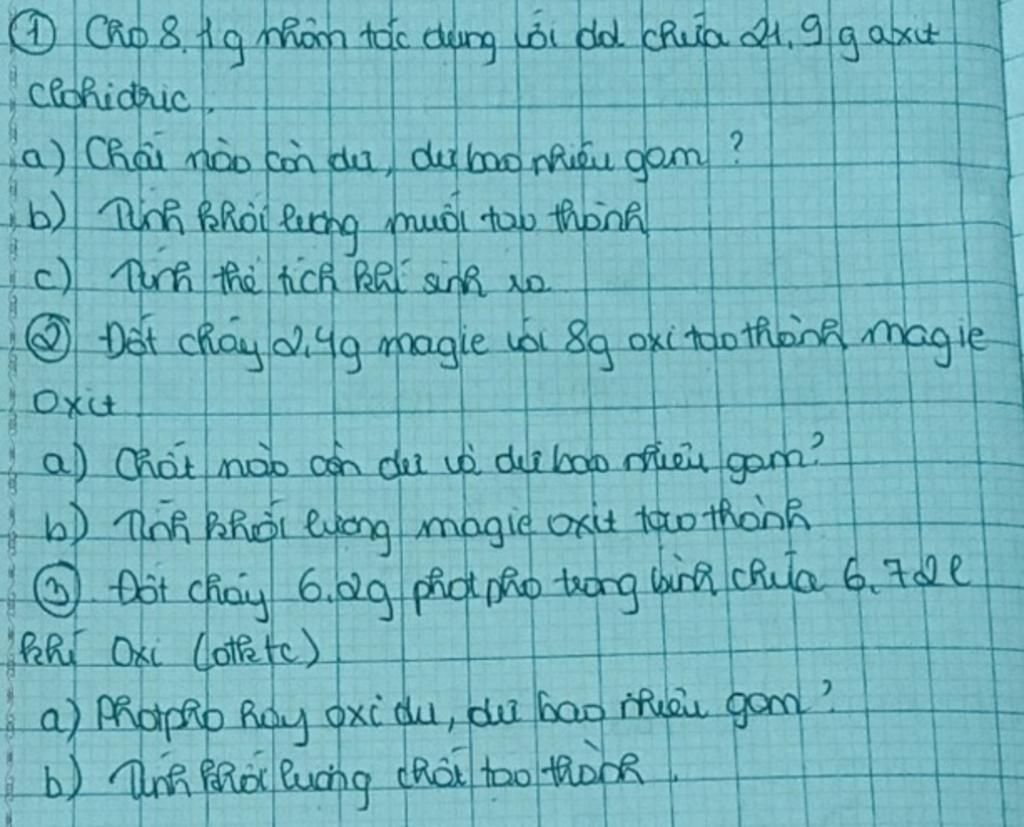 ① Cho 8.1g nhôm tác dụng với dd chứa 21,9 g axit
clohidric.
a) Chất nào còn dư, dư bao nhiêu gam?
b) Tính khối lượng muối tạo thành
c) Tính thể tích khí sinh ra
② Đốt cháy 2,4g magie với 8g oxi tạo thành magie
oxit
a) Chất nào còn dư và dư bao nhiêu gam?
b) Tính khối lượng magie oxit tạo thành
③ Đốt cháy 6.2g photpho trong bình chứa 6.72l
khí Oxi (ở đktc)
a) Photpho hay oxi dư, dư bao nhiêu gam?
b) Tính khối lượng chất tạo thành.